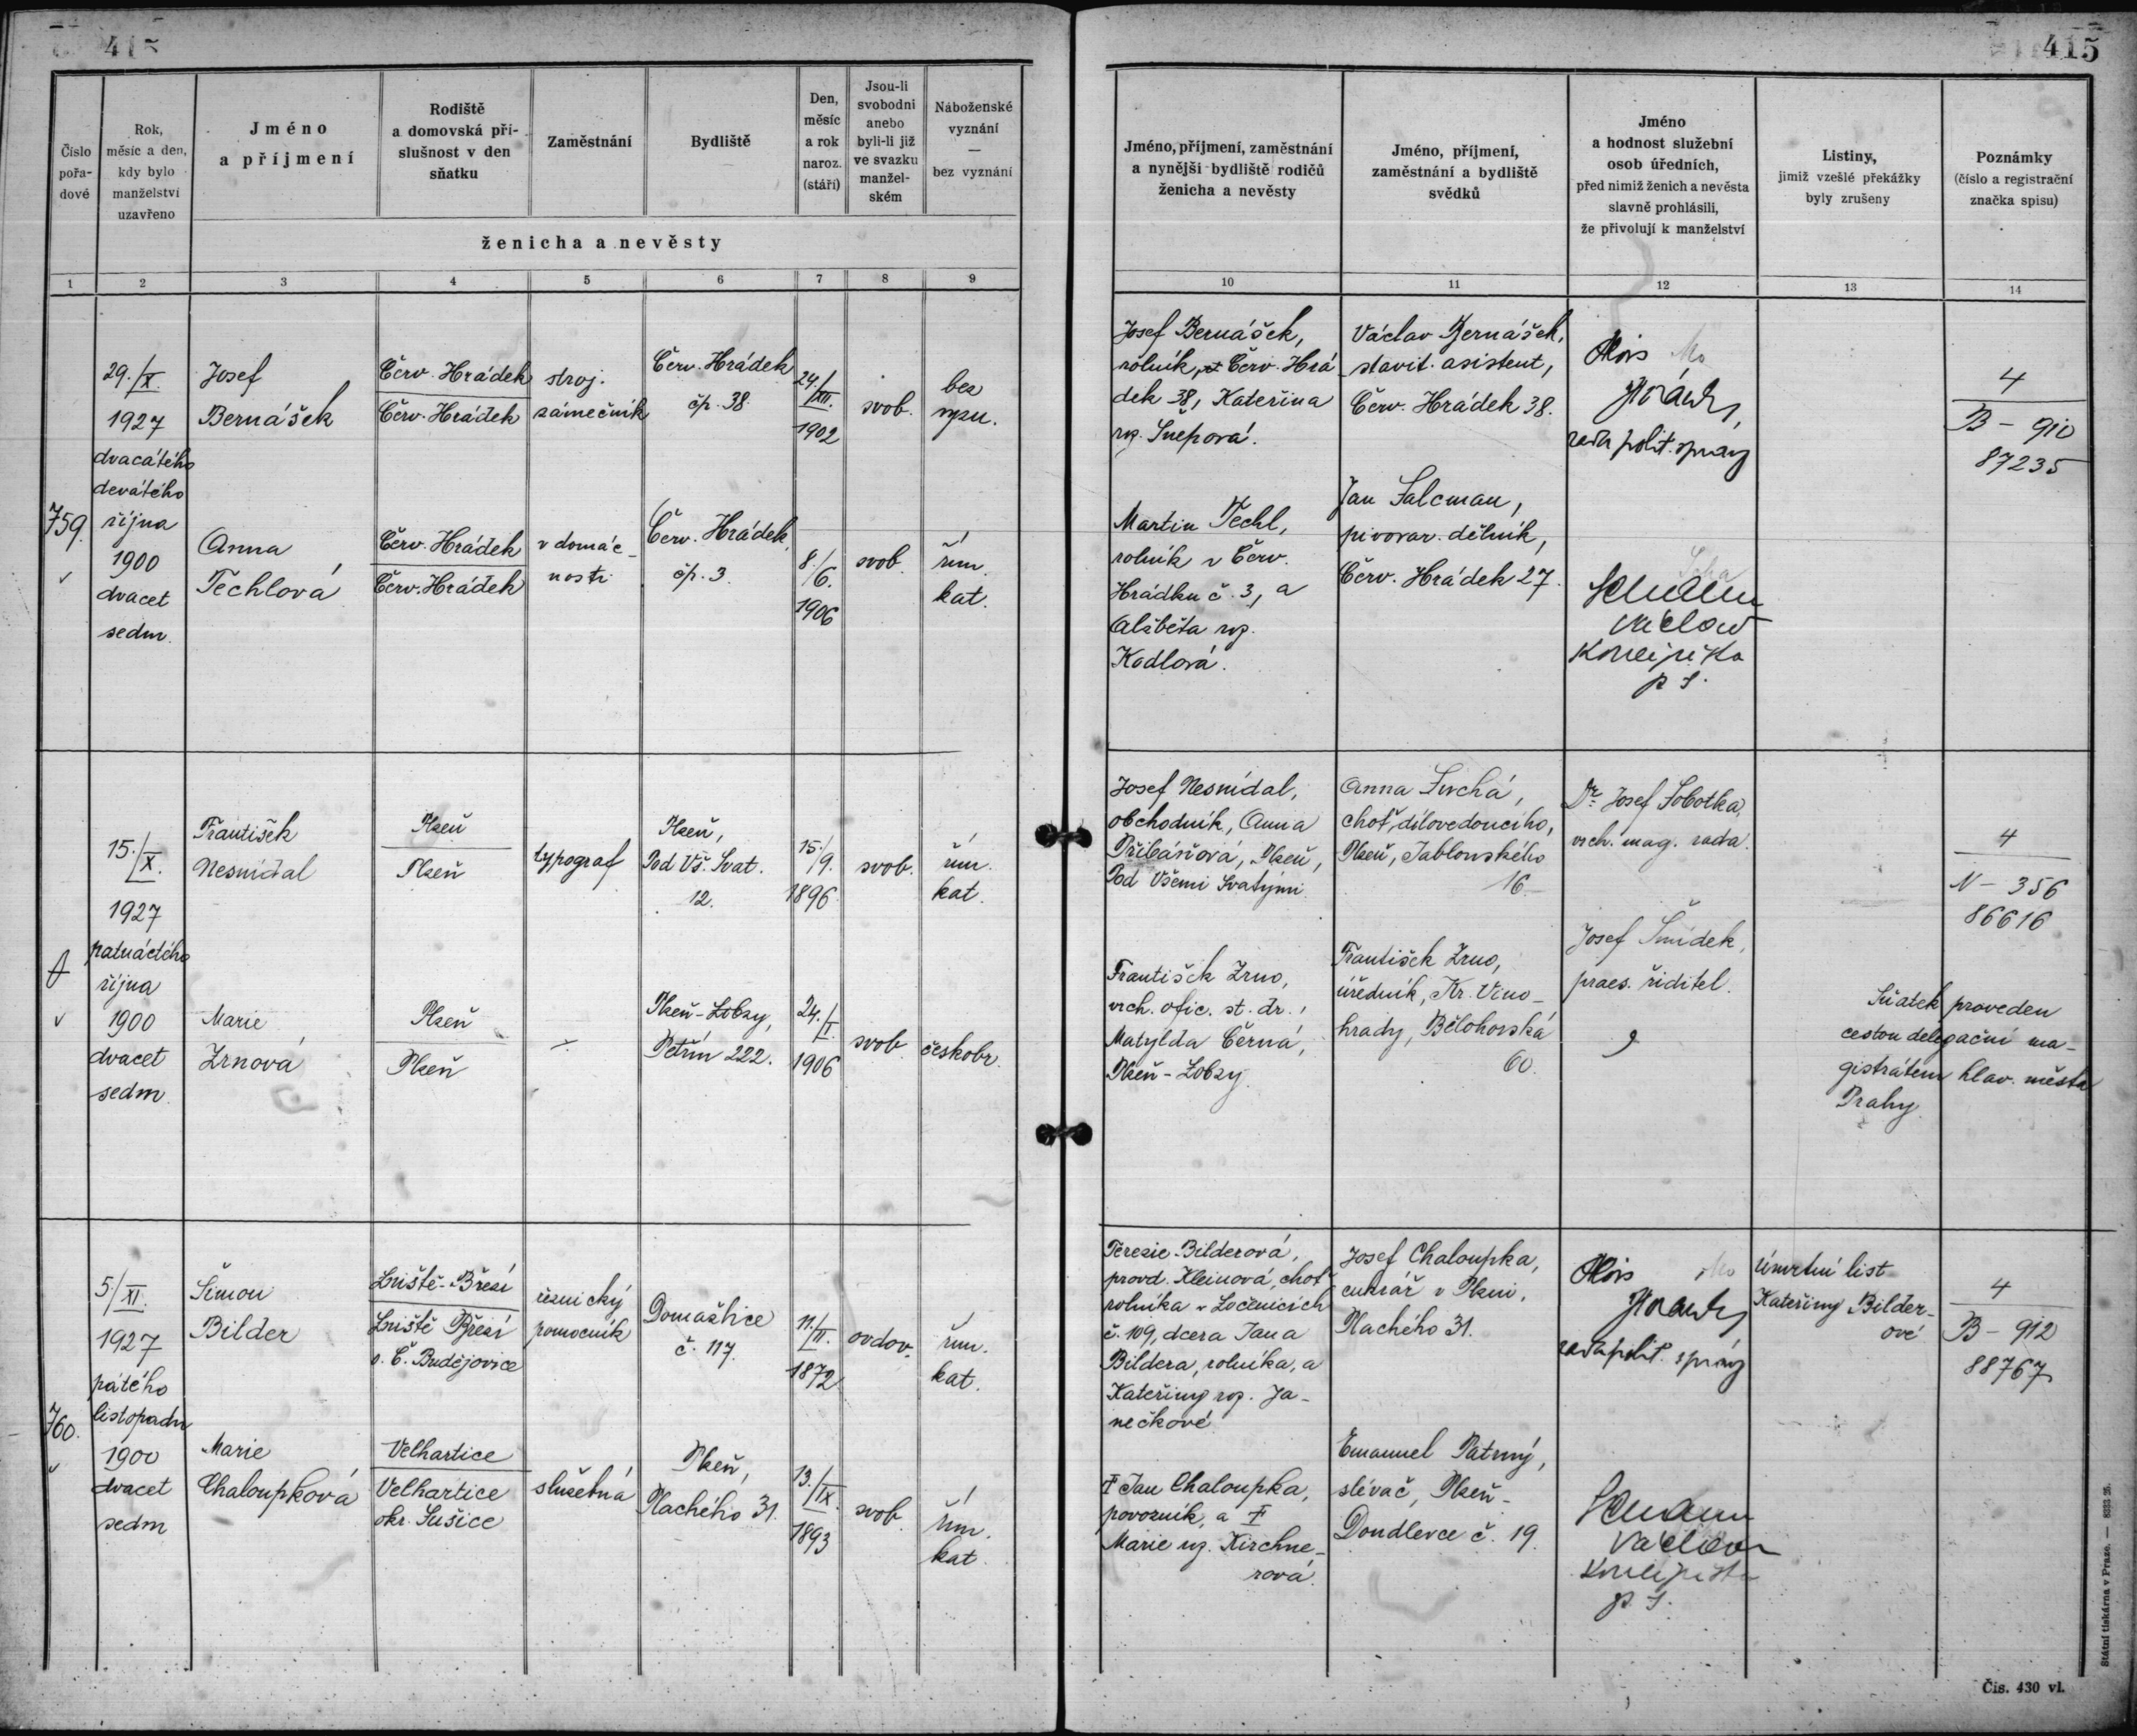 415
415
Číslo pořadové
Rok, měsíc a den, kdy bylo manželství uzavřeno
Jméno a příjmení
Rodiště a domovská příslušnost v den sňatku
Zaměstnání
Bydliště
Den, měsíc a rok naroz. (stáří)
Jsou-li svobodni anebo byli-li již ve svazku manželském
Náboženské vyznání — bez vyznání
ženicha a nevěsty
Jméno, příjmení, zaměstnání a nynější bydliště rodičů ženicha a nevěsty
Jméno, příjmení, zaměstnání a bydliště svědků
Jméno a hodnost služební osob úředních, před nimiž ženich a nevěsta slavně prohlásili, že přivolují k manželství
Listiny, jimiž vzešlé překážky byly zrušeny
Poznámky (číslo a registrační značka spisu)
1 2 3 4 5 6 7 8 9 10 11 12 13 14
759.
29./X.
1927
dvacátého
devátého
října
1900
dvacet
sedm.
Josef
Bernášek
Červ. Hrádek
Červ. Hrádek
stroj.
zámečník
Červ. Hrádek
čp. 38.
24./XII.
1902
svob.
bez
vyzn.
Josef Bernášek,
rolník, Červ. Hrá-
dek 38, Kateřina
roz. Šnepová.
Václav Bernášek,
stavit. asistent,
Červ. Hrádek 38.
Alois
rada polit. správy
4
B - 910
87235
Anna
Techlová
Červ. Hrádek
Červ. Hrádek
v domác-
nosti
Červ. Hrádek,
čp. 3.
8./6.
1906
svob.
řím.
kat.
Martin Techl,
rolník v Červ.
Hrádku č. 3, a
Alžběta roz.
Kodlová.
Jan Salcman,
pivovar. dělník,
Červ. Hrádek 27.
Václav
koncipista
p. s.
15./X.
1927
patnáctého
října
1900
dvacet
sedm.
František
Nesnídal
Plzeň
Plzeň
typograf
Plzeň,
Pod Vš. Svat.
12.
15./9.
1896
svob.
řím.
kat.
Josef Nesnídal,
obchodník, Anna
Přibáňová, Plzeň,
Pod Všemi Svatými.
Anna Suchá,
choť dílovedoucího,
Plzeň, Jablonského
16.
Dr. Josef Sobotka,
vrch. mag. rada.
4
N - 356
86616
Marie
Zrnová
Plzeň
Plzeň
Plzeň-Lobzy,
Petřín 222.
24./I.
1906
svob.
českobr.
František Zrno,
vrch. ofic. st. dr.,
Matylda Černá,
Plzeň-Lobzy.
František Zrno,
úředník, Kr. Vino-
hrady, Bělohorská
60.
Josef Šmídek,
praes. ředitel.
Sňatek proveden
cestou delegační ma-
gistrátem hlav. města
Prahy.
760.
5/XI.
1927
pátého
listopadu
1900
dvacet
sedm
Šimon
Bilder
Lniště-Březí
Lniště Březí
o. Č. Budějovice
řeznický
pomocník
Domažlice
č. 117.
11./II.
1872
ovdov.
řím.
kat.
Terezie Bilderová,
provd. Kleinová, choť
rolníka v Ločenicích
č. 109, dcera Jana
Bildera, rolníka, a
Kateřiny roz. Ja-
nečkové.
Josef Chaloupka,
cukrář v Plzni,
Plachého 31.
Alois
rada polit. správy
Úmrtní list
Kateřiny Bilder-
ové
4
B - 912
88767
Marie
Chaloupková
Velhartice
Velhartice
okr. Sušice
služebná
Plzeň,
Plachého 31.
13./IX.
1893
svob.
řím.
kat.
† Jan Chaloupka,
povozník, a †
Marie roz. Kirchne-
rová.
Emanuel Patrný,
slévač, Plzeň-
Doudlevce č. 19.
Václav
koncipista
p. s.
Státní tiskárna v Praze. — 8333 26.
Čís. 430 vl.